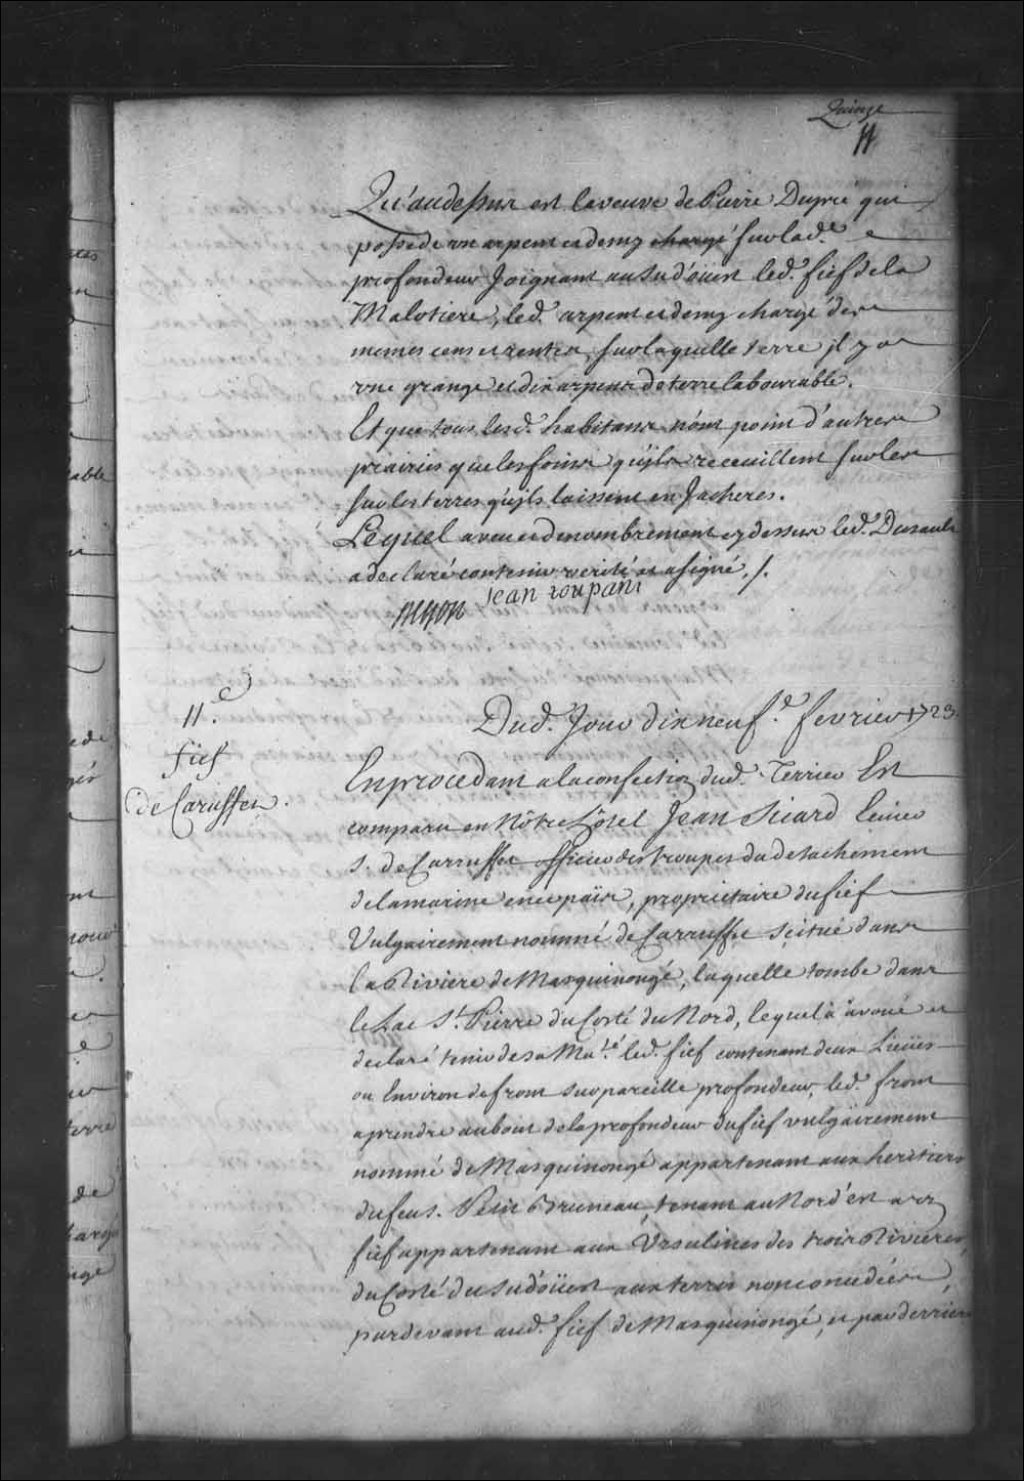 Quinze
11
Qu'audessus est la veuve de Pierre Dupré qui
possede un arpent et demy chargé sur lad.e
profondeur Joignant au Sud'oüest led. fief de la
Malotiere, led. arpent et demy chargé des
memes cens et rentes, sur laquelle terre jl y a
vne grange et dix arpens de terre labourable.
Et que tous lesd. habitans n'ont point d'autres
prairies que les foins qu'jls recueillent sur les
sur les terres qu'jls laissent en Jacheres.
Lequel aveu et denombrement cy dessus led. Dusault
a declaré contenir verité et a signé, /.
Jean
11.e
fief
de Carufsel.
Dud. Jour dix neuf.e fevrier 1723.
En procedant a la confection dud. Terrier Est
comparu en Nôtre hôtel Jean Sicard Ecuier
S. de Carrufsel officier des troupes du detachement
de la marine en ce païs, proprietaire du fief
Vulgairement nommé de Carrufsel scitué dans
la Riviere de Masquinongé, laquelle tombe dans
le Lac S.t Pierre du Costé du Nord, lequel à avoué et
declaré tenir de sa Ma.té led. fief contenant deux Lieües
ou Environ de front sur pareille profondeur, led. front
a prendre au bout de la profondeur du fief vulgairement
nommé de Masquinongé appartenant aux heritiers
du feu S. Petit Bruneau, tenant au Nord'est au
fief appartenant aux Ursulines des trois Rivieres,
du Costé du Sud'oüest aux terres non concedées,
par devant aud. fief de Masquinongé, et par derriere